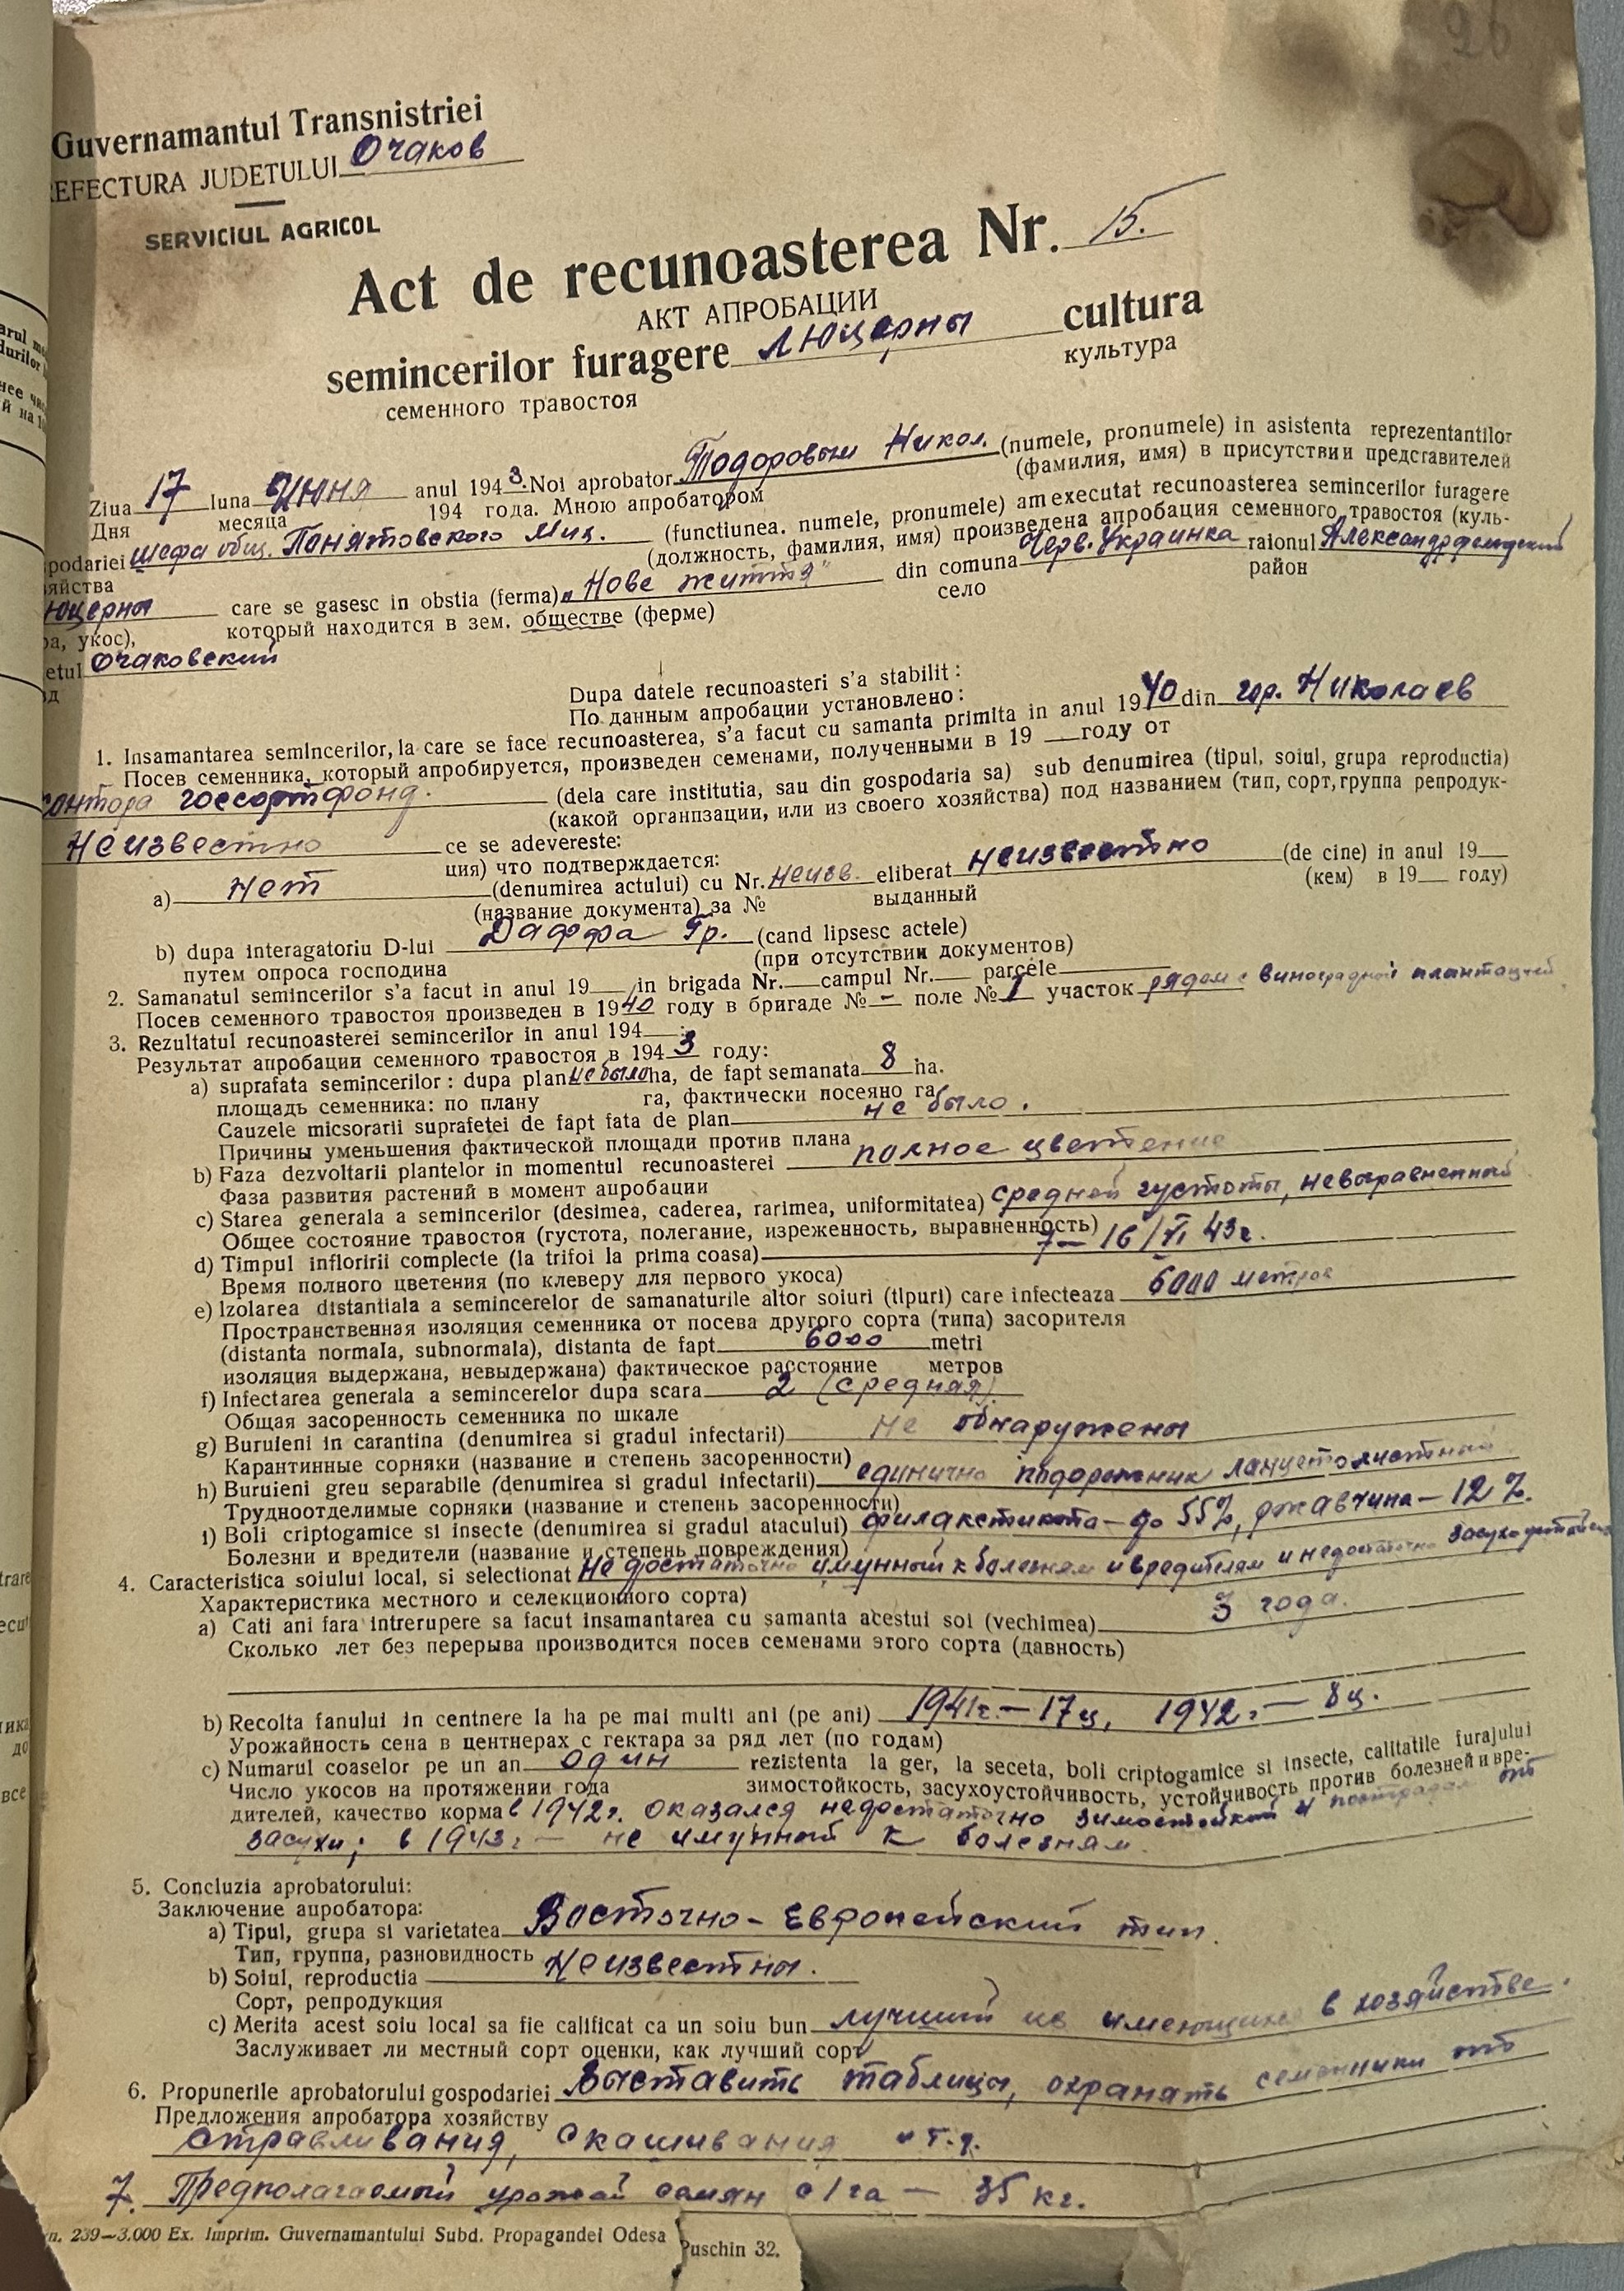 26
Guvernamantul Transnistriei
REFECTURA JUDETULUI Очаков
SERVICIUL AGRICOL
Act de recunoasterea Nr. 15.
АКТ АПРОБАЦИИ
semincerilor furagere люцерны cultura
семенного травостоя культура
Ziua 17 luna Июня anul 1943. Noi aprobator Тодоровым Никол. (numele, pronumele) in asistenta reprezentantilor
Дня месяца 194 года. Мною апробатором (фамилия, имя) в присутствии представителей
podariei шефа общ. Понятовского Мих. (functiunea. numele, pronumele) am executat recunoasterea semincerilor furagere
яйства (должность, фамилия, имя) произведена апробация семенного травостоя (куль-
юцерны care se gasesc in obstia (ferma) „Нове життя" din comuna Черв. Украинка raionul Александрфельдский
ра, укос), который находится в зем. обществе (ферме) село район
etul Очаковский
зд
Dupa datele recunoasteri s'a stabilit:
По данным апробации установлено:
1. Insamantarea semincerilor, la care se face recunoasterea, s'a facut cu samanta primita in anul 1940 din гор. Николаев
Посев семенника, который апробируется, произведен семенами, полученными в 19 году от
контора госсортфонд. (dela care institutia, sau din gospodaria sa) sub denumirea (tipul, soiul, grupa reproductia)
(какой организации, или из своего хозяйства) под названием (тип, сорт, группа репродук-
Неизвестно ce se adevereste:
ция) что подтверждается:
a) нет (denumirea actului) cu Nr. неизв. eliberat неизвестно (de cine) in anul 19
(название документа) за № выданный (кем) в 19 году)
b) dupa interagatoriu D-lui Даффа Гр. (cand lipsesc actele)
путем опроса господина (при отсутствии документов)
2. Samanatul semincerilor s'a facut in anul 19 in brigada Nr. campul Nr. parcele
Посев семенного травостоя произведен в 1940 году в бригаде № - поле № 1 участок рядом с виноградной плантацией
3. Rezultatul recunoasterei semincerilor in anul 194 :
Результат апробации семенного травостоя в 1943 году:
a) suprafata semincerilor: dupa plan не было ha, de fapt semanata 8 ha.
площадь семенника: по плану га, фактически посеяно га
Cauzele micsorarii suprafetei de fapt fata de plan не было.
Причины уменьшения фактической площади против плана
b) Faza dezvoltarii plantelor in momentul recunoasterei полное цветение
Фаза развития растений в момент апробации
c) Starea generala a semincerilor (desimea, caderea, rarimea, uniformitatea) средней густоты, невыравненный
Общее состояние травостоя (густота, полегание, изреженность, выравненность)
d) Timpul infloririi complecte (la trifoi la prima coasa) 7 — 16/VI 43г.
Время полного цветения (по клеверу для первого укоса)
e) Izolarea distantiala a semincerelor de samanaturile altor soiuri (tipuri) care infecteaza 6000 метров
Пространственная изоляция семенника от посева другого сорта (типа) засорителя
(distanta normala, subnormala), distanta de fapt 6000 metri
изоляция выдержана, невыдержана) фактическое расстояние метров
f) Infectarea generala a semincerelor dupa scara 2 (средняя)
Общая засоренность семенника по шкале
g) Buruieni in carantina (denumirea si gradul infectarii) не обнаружены
Карантинные сорняки (название и степень засоренности)
h) Buruieni greu separabile (denumirea si gradul infectarii) единично подорожник ланцетолистный
Трудноотделимые сорняки (название и степень засоренности)
i) Boli criptogamice si insecte (denumirea si gradul atacului) — до 55%, ржавчина — 12%.
Болезни и вредители (название и степень повреждения)
4. Caracteristica soiului local, si selectionat Недостаточно имунный к болезням и вредителям и недостаточно
Характеристика местного и селекционного сорта)
a) Cati ani fara intrerupere sa facut insamantarea cu samanta acestui soi (vechimea) 3 года.
Сколько лет без перерыва производится посев семенами этого сорта (давность)
b) Recolta fanului in centnere la ha pe mai multi ani (pe ani) 1941г. — 17ц, 1942г. — 8ц.
Урожайность сена в центнерах с гектара за ряд лет (по годам)
c) Numarul coaselor pe un an один rezistenta la ger, la seceta, boli criptogamice si insecte, calitatile furajului
Число укосов на протяжении года зимостойкость, засухоустойчивость, устойчивость против болезней и вре-
дителей, качество корма в 1942г. оказался недостаточно зимостойкий и пострадал от
засухи; в 1943г — не имунный к болезням.
5. Concluzia aprobatorului:
Заключение апробатора:
a) Tipul, grupa si varietatea Восточно-Европейский тип.
Тип, группа, разновидность
b) Soiul, reproductia Неизвестны.
Сорт, репродукция
c) Merita acest soiu local sa fie calificat ca un soiu bun лучший из имеющихся в хозяйстве.
Заслуживает ли местный сорт оценки, как лучший сорт
6. Propunerile aprobatorului gospodariei Выставить таблицы, охранять семенники от
Предложения апробатора хозяйству
стравливания, скашивания и т.д.
7. Предполагаемый урожай семян с/га — 35 кг.
n. 239—3.000 Ex. Imprim. Guvernamantului Subd. Propagandei Odesa Puschin 32.